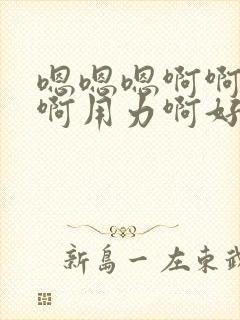 嗯嗯嗯啊啊
啊用力啊好
新島一 左東武